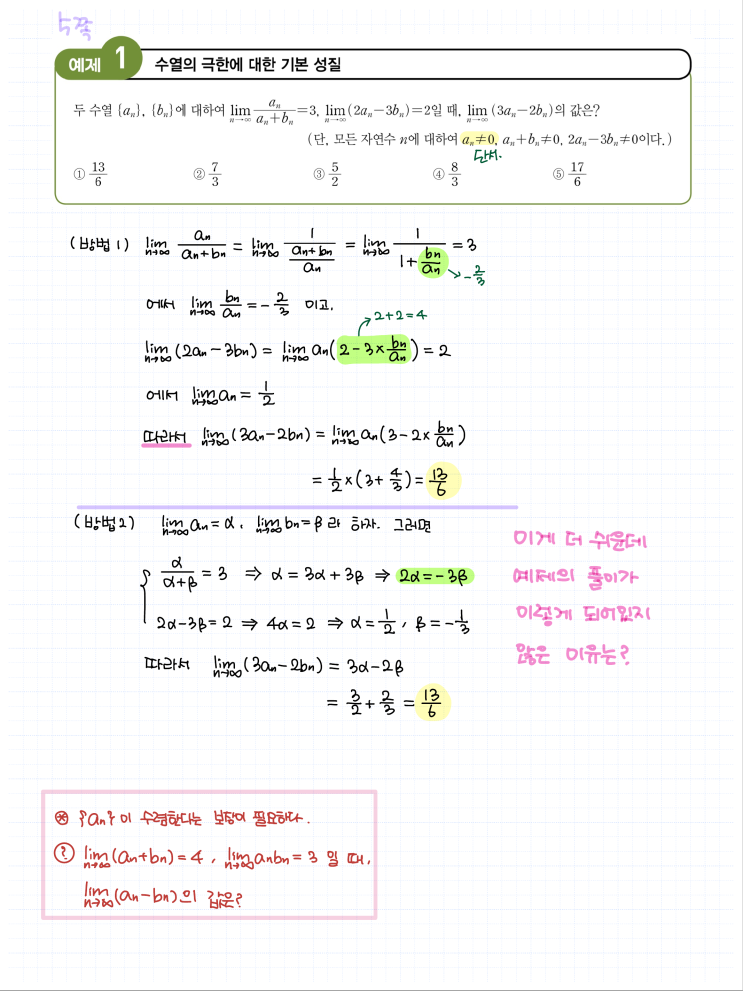 5쪽
예제 1 수열의 극한에 대한 기본 성질
두 수열 {aₙ}, {bₙ}에 대하여 lim_{n→∞} aₙ/(aₙ+bₙ)=3, lim_{n→∞} (2aₙ−3bₙ)=2일 때, lim_{n→∞} (3aₙ−2bₙ)의 값은?
(단, 모든 자연수 n에 대하여 aₙ≠0, aₙ+bₙ≠0, 2aₙ−3bₙ≠0이다.)
단서.
① 13/6 ② 7/3 ③ 5/2 ④ 8/3 ⑤ 17/6
(방법1) lim_{n→∞} aₙ/(aₙ+bₙ) = lim_{n→∞} 1/((aₙ+bₙ)/aₙ) = lim_{n→∞} 1/(1+bₙ/aₙ) = 3
→ -2/3
에서 lim_{n→∞} bₙ/aₙ = -2/3 이고,
2+2=4
lim_{n→∞} (2aₙ-3bₙ) = lim_{n→∞} aₙ(2-3×bₙ/aₙ) = 2
에서 lim_{n→∞} aₙ = 1/2
따라서 lim_{n→∞} (3aₙ-2bₙ) = lim_{n→∞} aₙ(3-2×bₙ/aₙ)
= 1/2×(3+4/3) = 13/6
(방법2) lim_{n→∞} aₙ=α, lim_{n→∞} bₙ=β라 하자. 그러면
α/(α+β)=3 ⇒ α=3α+3β ⇒ 2α=-3β
2α-3β=2 ⇒ 4α=2 ⇒ α=1/2, β=-1/3
따라서 lim_{n→∞} (3aₙ-2bₙ) = 3α-2β
= 3/2+2/3 = 13/6
이게 더 쉬운데
예제의 풀이가
이렇게 되어있지
않은 이유는?
⊛ {aₙ}이 수렴한다는 보장이 필요하다.
? lim_{n→∞} (aₙ+bₙ)=4, lim_{n→∞} aₙbₙ=3 일 때,
lim_{n→∞} (aₙ-bₙ)의 값은?